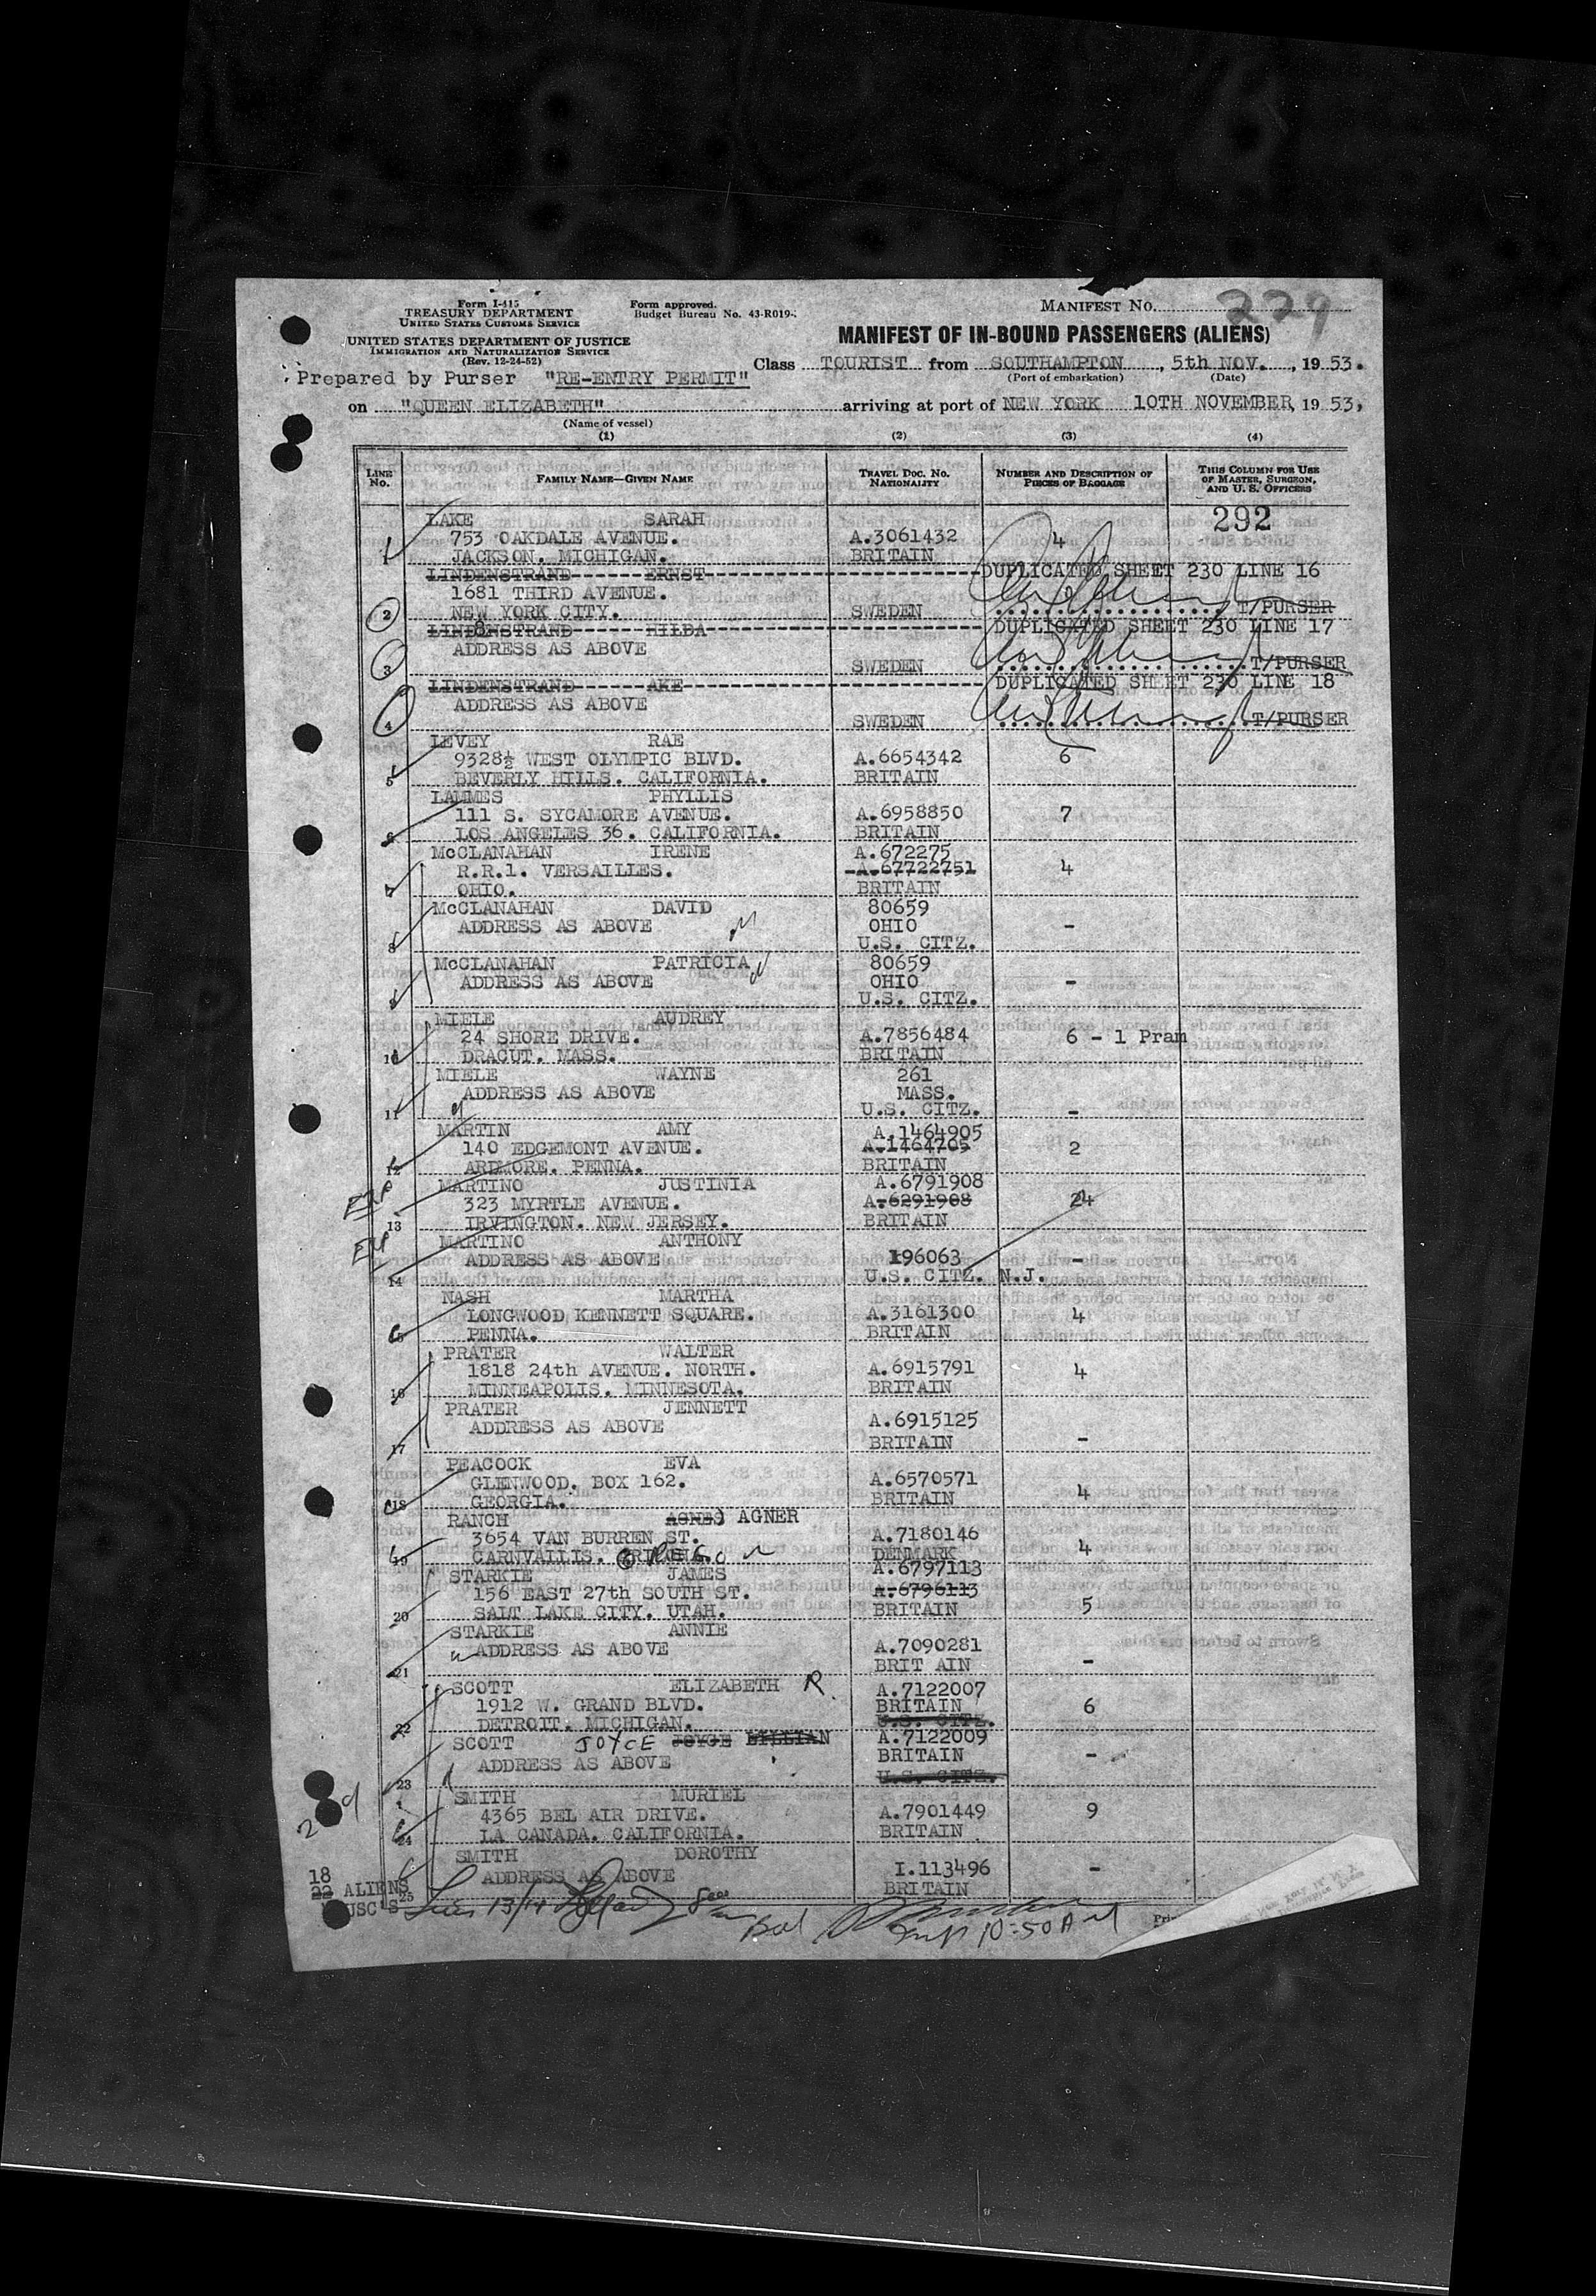 Form I-415
TREASURY DEPARTMENT
UNITED STATES CUSTOMS SERVICE
UNITED STATES DEPARTMENT OF JUSTICE
IMMIGRATION AND NATURALIZATION SERVICE
(Rev. 12-24-52)
Form approved.
Budget Bureau No. 43-R019-
MANIFEST No. 229
MANIFEST OF IN-BOUND PASSENGERS (ALIENS)
Class TOURIST from SOUTHAMPTON, 5th NOV., 1953.
(Port of embarkation) (Date)
Prepared by Purser "RE-ENTRY PERMIT"
on "QUEEN ELIZABETH" arriving at port of NEW YORK 10TH NOVEMBER, 1953,
(Name of vessel)
(1) (2) (3) (4)
LINE No. FAMILY NAME—GIVEN NAME TRAVEL DOC. No. NATIONALITY NUMBER AND DESCRIPTION OF PIECES OF BAGGAGE THIS COLUMN FOR USE OF MASTER, SURGEON, AND U. S. OFFICERS
292
LAKE SARAH
753 OAKDALE AVENUE. A.3061432 4
1 JACKSON. MICHIGAN. BRITAIN
LINDENSTRAND------ERNST DUPLICATED SHEET 230 LINE 16
1681 THIRD AVENUE.
2 NEW YORK CITY. SWEDEN T/PURSER
LINDENSTRAND------HILBA DUPLICATED SHEET 230 LINE 17
ADDRESS AS ABOVE
3 SWEDEN T/PURSER
LINDENSTRAND------AKE DUPLICATED SHEET 230 LINE 18
ADDRESS AS ABOVE
4 SWEDEN T/PURSER
LEVEY RAE
9328½ WEST OLYMPIC BLVD. A.6654342 6
5 BEVERLY HILLS. CALIFORNIA. BRITAIN
LAMMES PHYLLIS
111 S. SYCAMORE AVENUE. A.6958850 7
6 LOS ANGELES 36. CALIFORNIA. BRITAIN
McCLANAHAN IRENE A.672275
R.R.1. VERSAILLES. A.67722751 4
7 OHIO. BRITAIN
McCLANAHAN DAVID 80659
ADDRESS AS ABOVE OHIO -
8 U.S. CITZ.
McCLANAHAN PATRICIA 80659
ADDRESS AS ABOVE OHIO -
9 U.S. CITZ.
MIELE AUDREY
24 SHORE DRIVE. A.7856484 6 - 1 Pram
10 DRACUT. MASS. BRITAIN
MIELE WAYNE 261
ADDRESS AS ABOVE MASS.
11 U.S. CITZ. -
MARTIN AMY A.1464905
140 EDGEMONT AVENUE. A.1464705 2
12 ARDMORE. PENNA. BRITAIN
MARTINO JUSTINIA A.6791908
323 MYRTLE AVENUE. A.6291908 24
13 IRVINGTON. NEW JERSEY. BRITAIN
MARTINO ANTHONY
ADDRESS AS ABOVE 196063 -
14 U.S. CITZ. N.J.
NASH MARTHA
LONGWOOD KENNETT SQUARE. A.3161300 4
15 PENNA. BRITAIN
PRATER WALTER
1818 24th AVENUE. NORTH. A.6915791 4
16 MINNEAPOLIS. MINNESOTA. BRITAIN
PRATER JENNETT
ADDRESS AS ABOVE A.6915125
17 BRITAIN -
PEACOCK EVA
GLENWOOD. BOX 162. A.6570571
18 GEORGIA. BRITAIN 4
RANCH AGNES AGNER
3654 VAN BURREN ST. A.7180146
19 CARNVALLIS. DENMARK 4
STARKIE JAMES A.6797113
156 EAST 27th SOUTH ST. A.6796113
20 SALT LAKE CITY. UTAH. BRITAIN 5
STARKIE ANNIE
ADDRESS AS ABOVE A.7090281
21 BRIT AIN -
SCOTT ELIZABETH R. A.7122007
1912 W. GRAND BLVD. BRITAIN 6
22 DETROIT. MICHIGAN. U.S. CITZ.
SCOTT JOYCE JOYCE LILLIAN A.7122009
ADDRESS AS ABOVE BRITAIN -
23 U.S. CITZ.
SMITH MURIEL
4365 BEL AIR DRIVE. A.7901449 9
24 LA CANADA. CALIFORNIA. BRITAIN
SMITH DOROTHY
ADDRESS AS ABOVE I.113496 -
25 BRITAIN
18
22 ALIENS
USC'S
10:50 A M